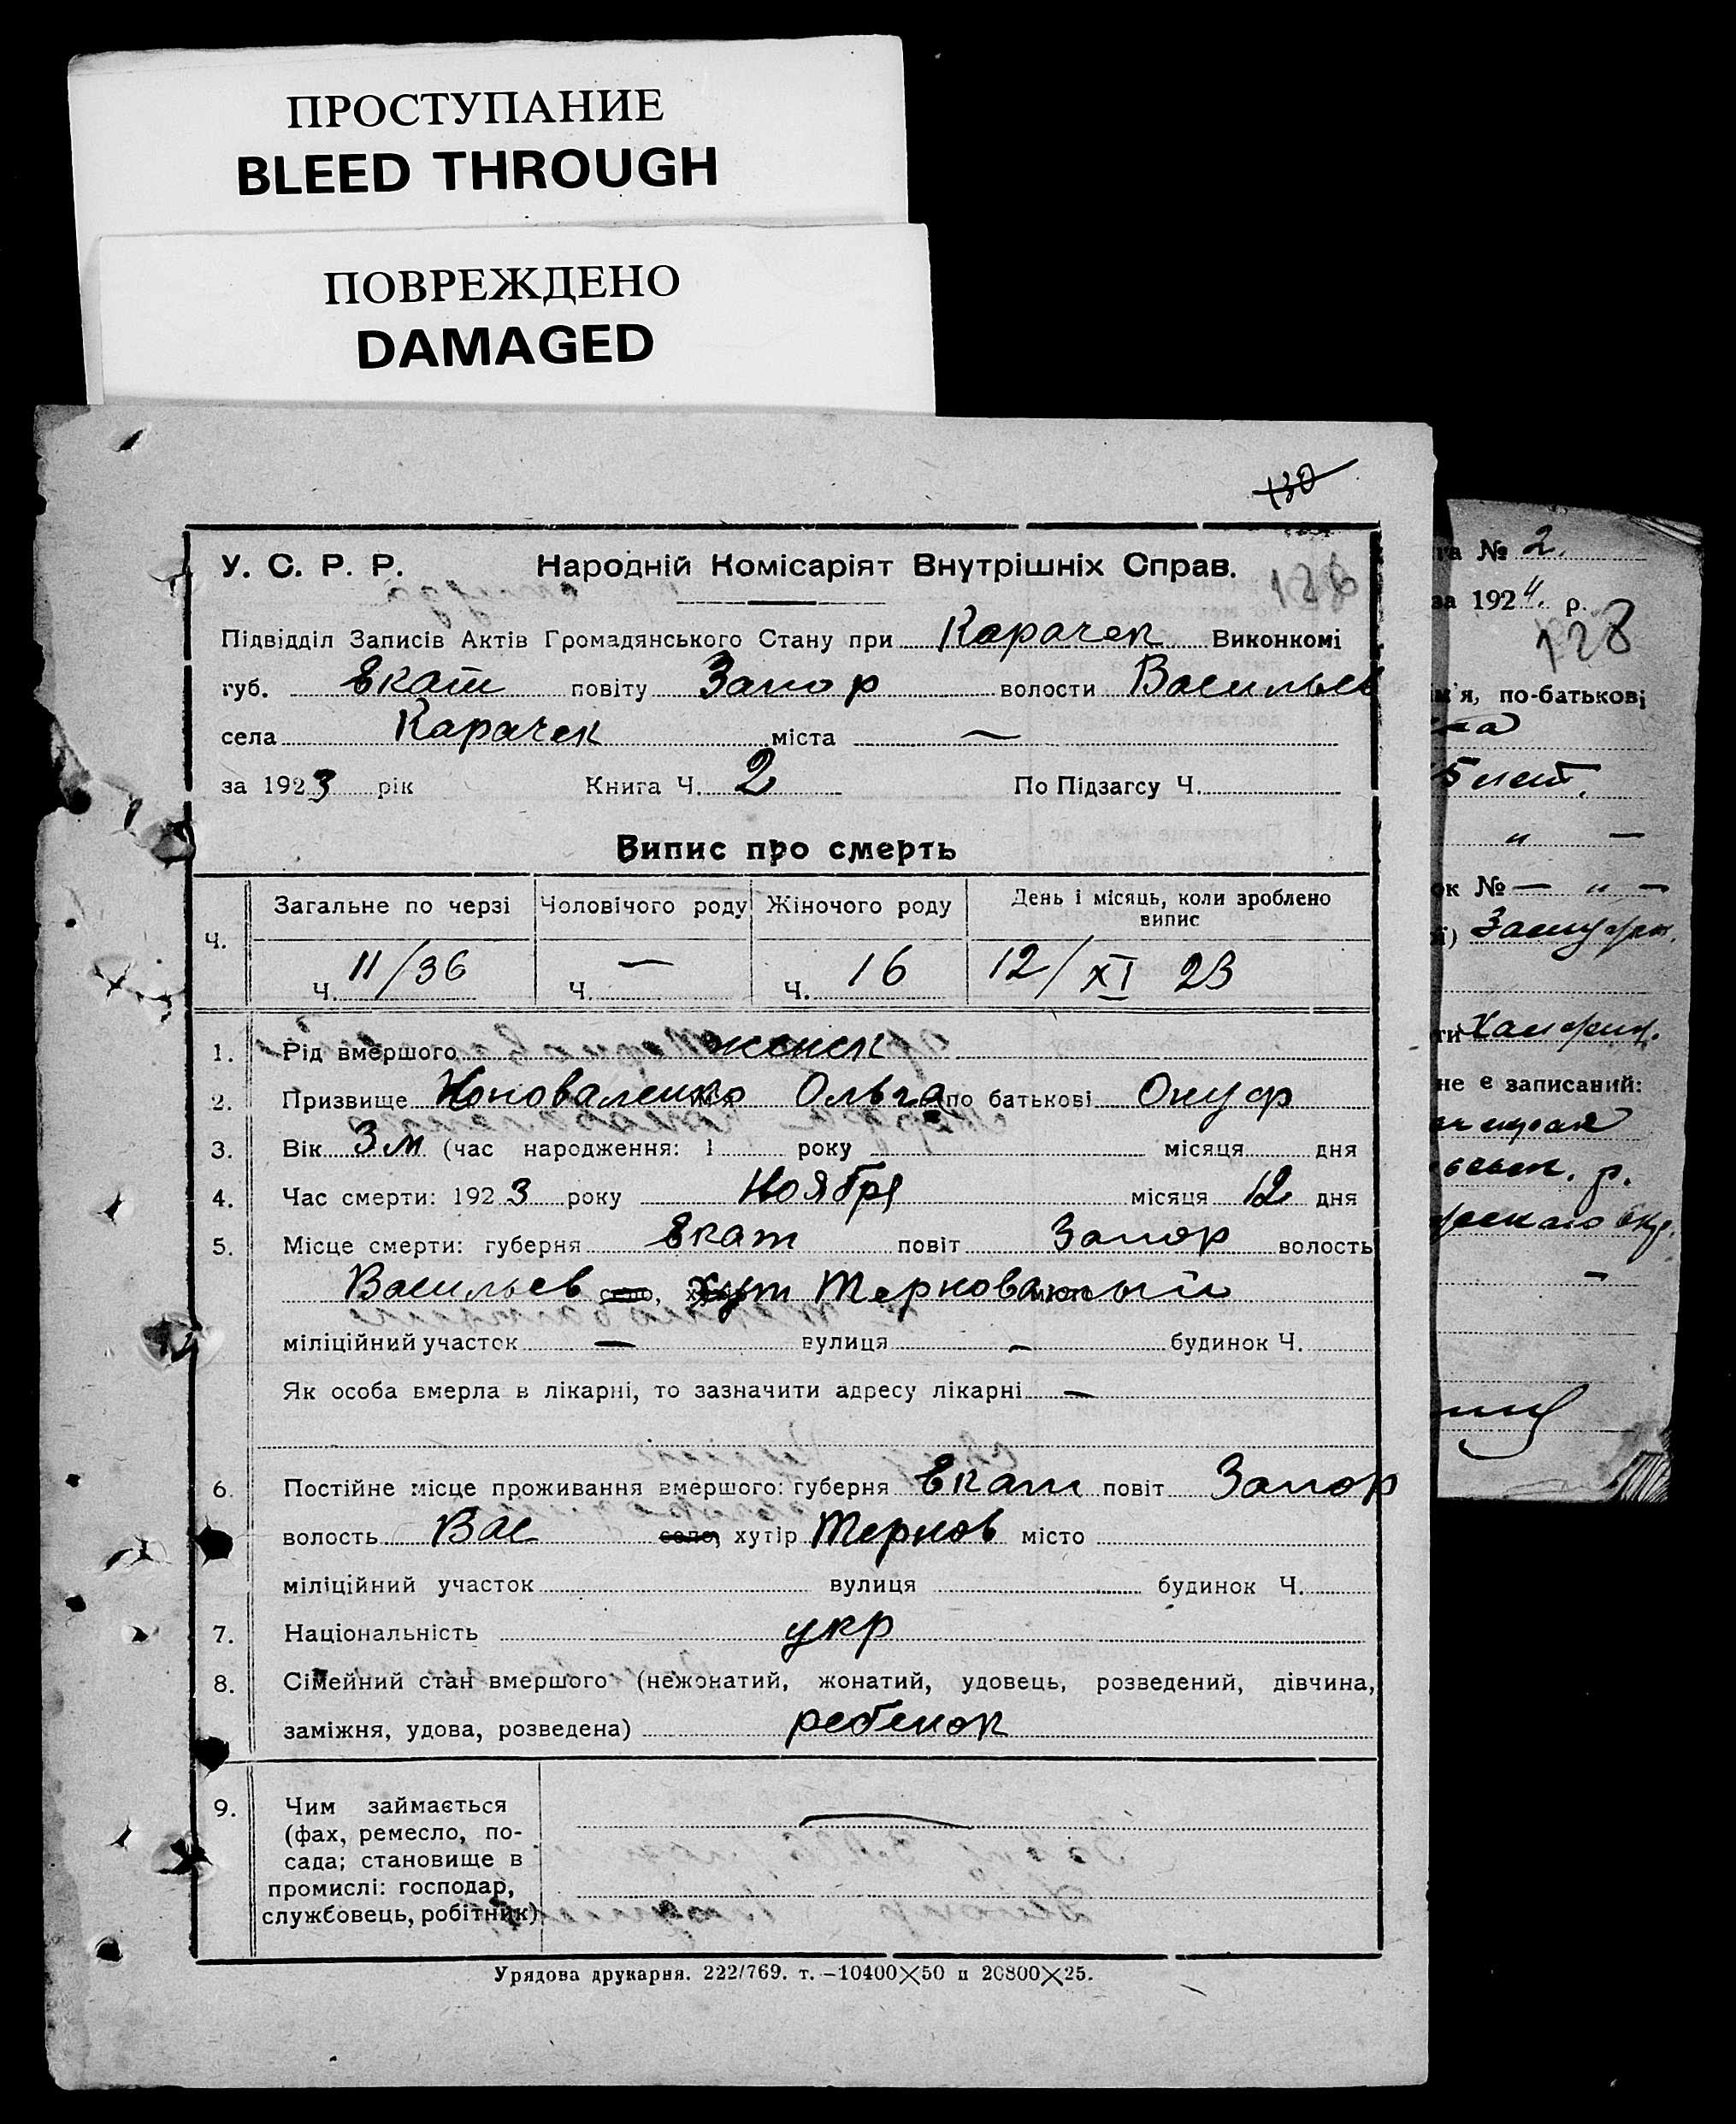 ПРОСТУПАНИЕ
BLEED THROUGH
ПОВРЕЖДЕНО
DAMAGED
130
У. С. Р. Р. Народній Комісаріят Внутрішніх Справ.
128
Підвідділ Записів Актів Громадянського Стану при Карачек Виконкомі
губ. Екат повіту Запор волости Васильев
села Карачек міста —
за 1923 рік Книга Ч. 2 По Підзагсу Ч.
Випис про смерть
Ч. Загальне по черзі Чоловічого роду Жіночого роду День і місяць, коли зроблено випис
Ч. 11/36 Ч. — Ч. 16 12/XI 23
1. Рід вмершого женск
2. Призвище Коноваленко Ольга по батькові Онуф
3. Вік 3 м (час народження: 1 року місяця дня
4. Час смерти: 1923 року Ноября місяця 12 дня
5. Місце смерти: губерня Екат повіт Запор волость
Васильев село, хут Терноватый
міліційний участок — вулиця — будинок Ч.
Як особа вмерла в лікарні, то зазначити адресу лікарні —
6. Постійне місце проживання вмершого: губерня Екат повіт Запор
волость Вас село, хутір Тернов місто
міліційний участок вулиця будинок Ч.
7. Національність укр
8. Сімейний стан вмершого (нежонатий, жонатий, удовець, розведений, дівчина,
заміжня, удова, розведена) ребенок
9. Чим займається
(фах, ремесло, по-
сада; становище в
промислі: господар,
службовець, робітник)
—
Урядова друкарня. 222/769. т.—10400×50 п 20800×25.
га № 2.
за 1924. р.
128
м'я, по-батькові
ка
5 лет.
„ —
ок № — „ —
ти
не є записаний:
р.